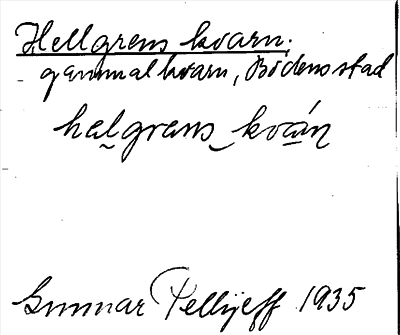 Hellgrens kvarn.
gammal kvarn, Bodens stad
halgrans kván
Gunnar Pellijeff 1935